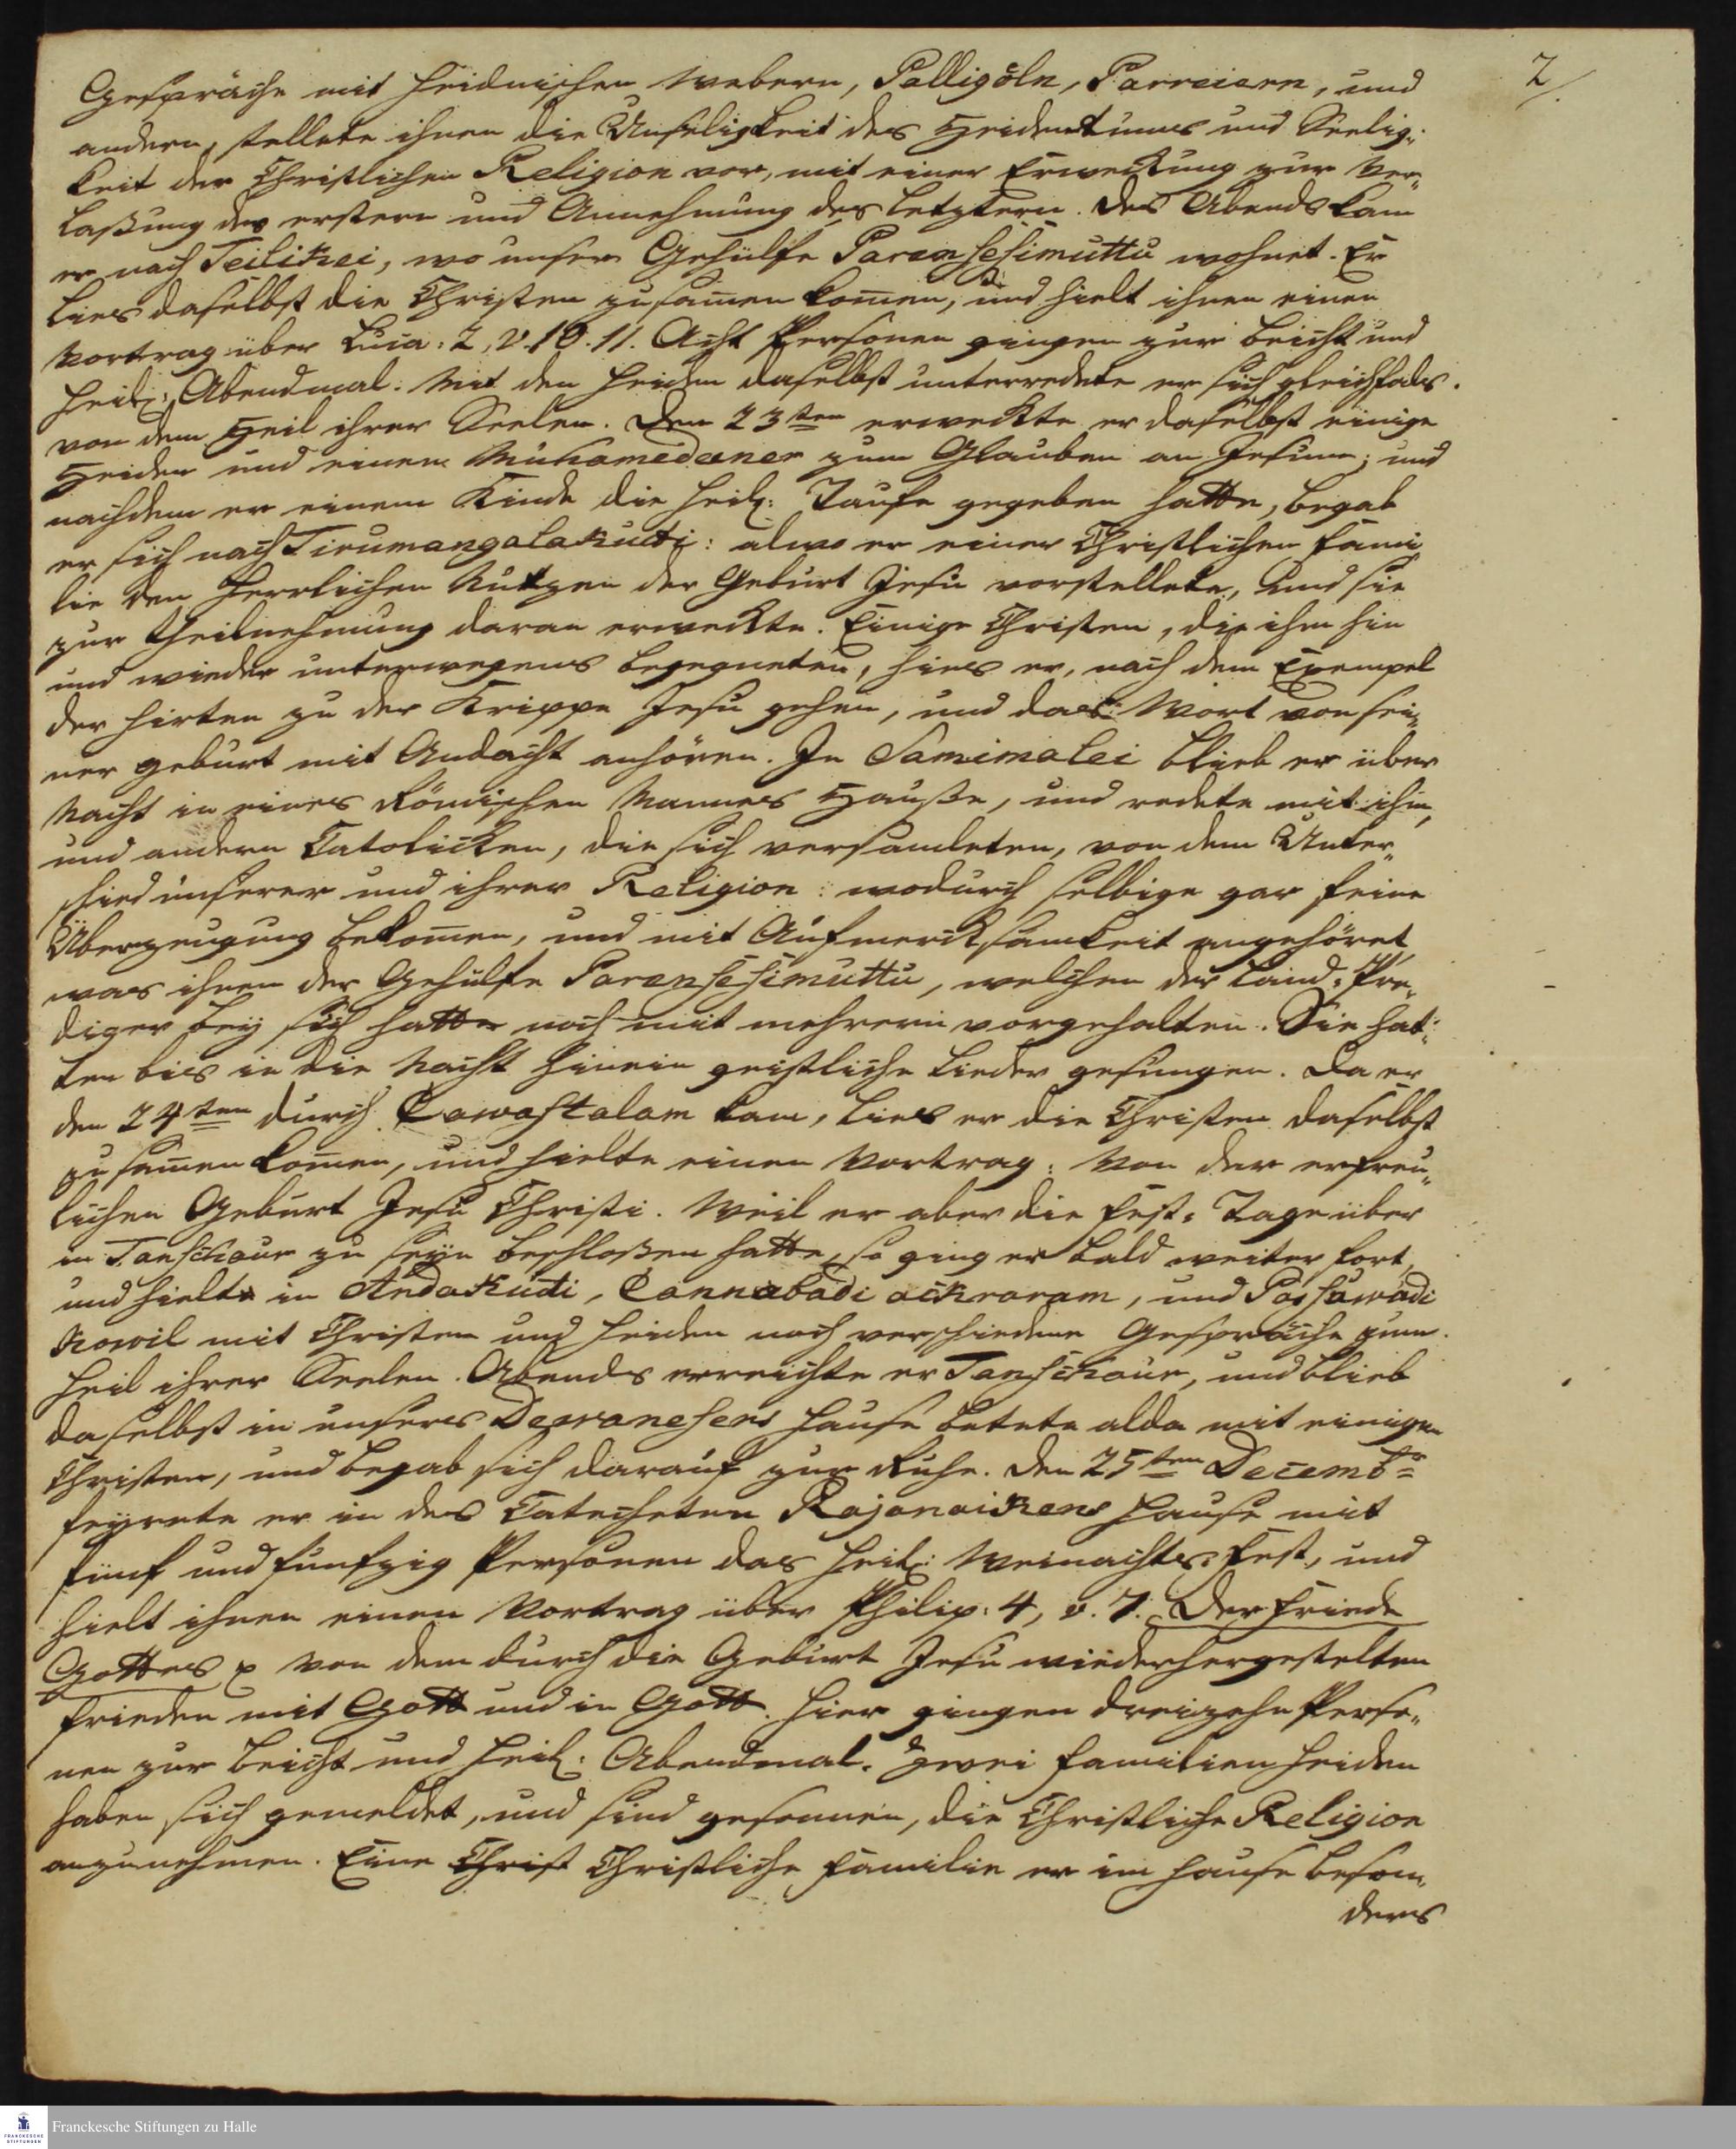 2/.
Gespräche mit heidnischen Webern, Palligöln, Parreiern, und
andern, stellete ihnen die Unseligkeit des Heidentums und Seelig-
keit der Christlichen Religion vor, mit einer Erweckung zur Ver-
laßung des erstern und Annehmung des letztern. Des Abends kam
er nach Teilikei, wo unser Gehülfe Paransesimuttu wohnet. Er
lies daselbst die Christen zusam̄en kom̄en, und hielt ihnen einen
Vortrag über Luca: 2, v. 10. 11. Acht Personen gingen zur Beicht und
heil: Abendmal. Mit den Heiden daselbst unterredete er sich gleichfals.
von dem Heil ihrer Seelen. Den 23ten erweckte er daselbst einige
Heiden und einen Muhamedaner zum Glauben an Jesum; und
nachdem er einem Kinde die heil: Taufe gegeben hatte, begab
er sich nach Tirumangalakudi: alwo er einer Christlichen Fami-
lie den herrlichen Nutzen der Geburt Jesu vorstellete, und sie
zur Theilnehmung daran erweckte. Einige Christen, die ihm hin
und wieder unterwegens begegneten, hies er, nach dem Exempel
der Hirten zu der Krippe Jesu gehen, und das Wort von sei-
ner Geburt mit Andacht anhören. In Samimalei blieb er über
Nacht in eines Römischen Mannes Hauße, und redete mit ihm,
und andern Catolicken, die sich versamleten, von dem Unter-
schied unserer und ihrer Religion: wodurch selbige gar feine
Überzeugung bekom̄en, und mit Aufmercksamkeit angehöret,
was ihnen der Gehülfe Paransesimuttu, welchen der Land-Pre-
diger bey sich hatte noch mit mehrern vorgehalten. Sie hat-
ten bis in die Nacht hinein geistliche Lieder gesungen. Da er
den 24ten durch Cawastalam kam, lies er die Christen daselbst
zusam̄en kom̄en, und hielte einen Vortrag: Von der erfreu-
lichen Geburt Jesu Christi. Weil er aber die Fest-Tage über
in Tanschaur zu seyn beschloßen hatte, so ging er bald weiter fort,
und hielte in Andakudi, Cannabadi ackraram, und Passuwadi
kowil mit Christen und Heiden noch verschiedene Gespräche zum
Heil ihrer Seelen. Abends erreichte er Tanschaur, und blieb
daselbst in unsers Dewanesens Hause betete alda mit einigen
Christen, und begab sich darauf zur Ruhe. Den 25ten Decembr
feyrete er in des Catecheten Rajanaikens Hause mit
fünf und funfzig Personen das heil: Weinachts-Fest, und
hielt ihnen einen Vortrag über Philip: 4, v. 7. Der Friede
Gottes p von dem durch die Geburt Jesu wiederhergestelten
Frieden mit Gott und in Gott. Hier gingen dreizehn Perso-
nen zur Beicht und heil: Abendmal. Zwei Familien Heiden
haben sich gemeldet, und sind gesonnen, die Christliche Religion
anzunehmen. Eine Christ Christliche Familie er im Hause beson-
ders
Franckesche Stiftungen zu Halle
FRANCKESCHE STIFTUNGEN